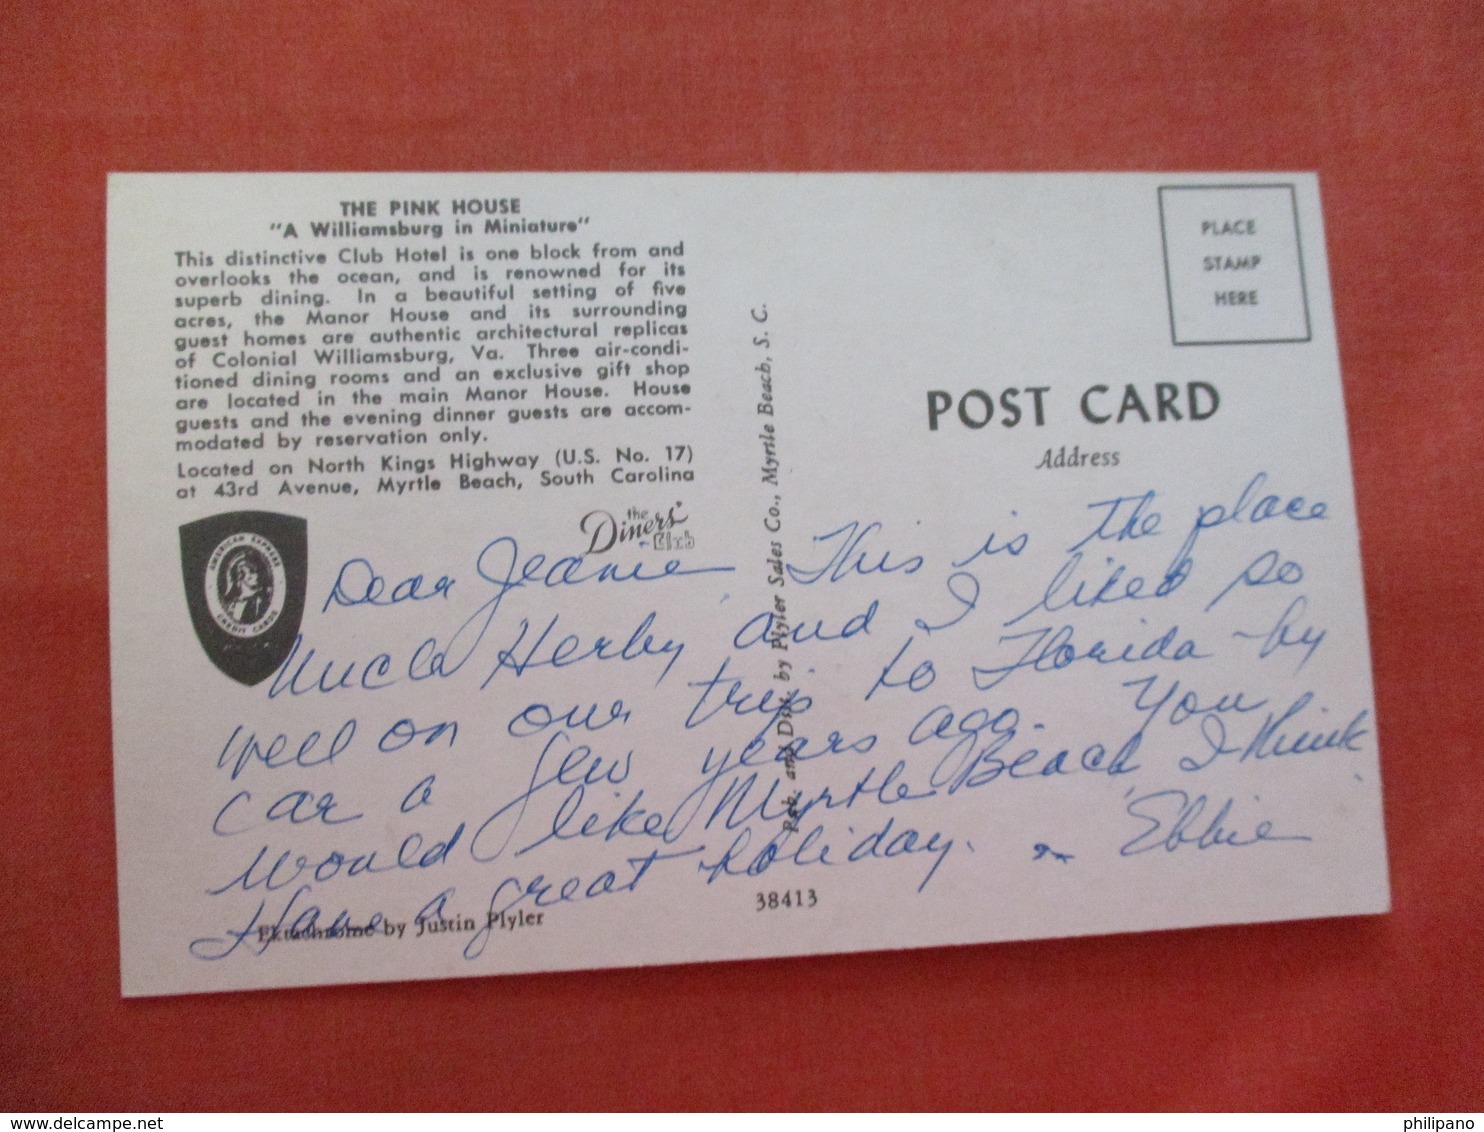 THE PINK HOUSE
"A Williamsburg in Miniature"
This distinctive Club Hotel is one block from and
overlooks the ocean, and is renowned for its
superb dining. In a beautiful setting of five
acres, the Manor House and its surrounding
guest homes are authentic architectural replicas
of Colonial Williamsburg, Va. Three air-condi-
tioned dining rooms and an exclusive gift shop
are located in the main Manor House. House
guests and the evening dinner guests are accom-
modated by reservation only.
Located on North Kings Highway (U.S. No. 17)
at 43rd Avenue, Myrtle Beach, South Carolina
AMERICAN EXPRESS
CREDIT CARDS
the
Diners'
Club
Pub. and Dist. by Plyler Sales Co., Myrtle Beach, S. C.
PLACE
STAMP
HERE
POST CARD
Address
Dear Jeanie This is the place
Uncle Herby and I liked so
well on our trip to Florida by
car a few years ago. You
would like Myrtle Beach I think
Have a great holiday. ~ Ebbie
Ektachrome by Justin Plyler
38413
delcampe.net
philipano